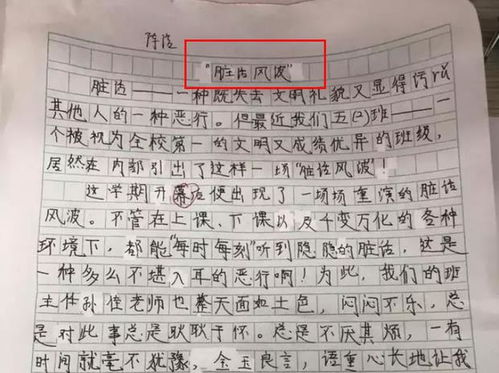 陈洁
"脏话风波"
脏话——一种既失去文明礼貌又显得污rǔ
其他人的一种恶行。但最近我们五(二)班——一
个被视为全校第一的文明又成绩优异的班级,
居然在内部引出了这样一场"脏话风波"!
这学期开幕后便出现了一场场重演的脏话
风波。不管在上课、下课以及千变万化的各种
环境下,都能"每时每刻"听到隐隐的脏话,这是
一种多么不堪入耳的恶行啊!为此,我们的班
主任孙佳老师也整天面如土色,闷闷不乐,总
是对此事总是耿耿于怀。总是不厌其烦,一有
时间就毫不犹豫,金玉良言,语重心长地让我